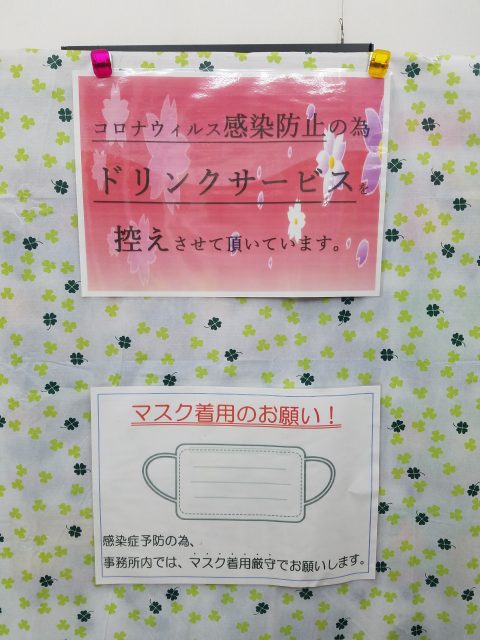 コロナウィルス感染防止の為
ドリンクサービスを
控えさせて頂いています。
マスク着用のお願い！
感染症予防の為、
事務所内では、マスク着用厳守でお願いします。